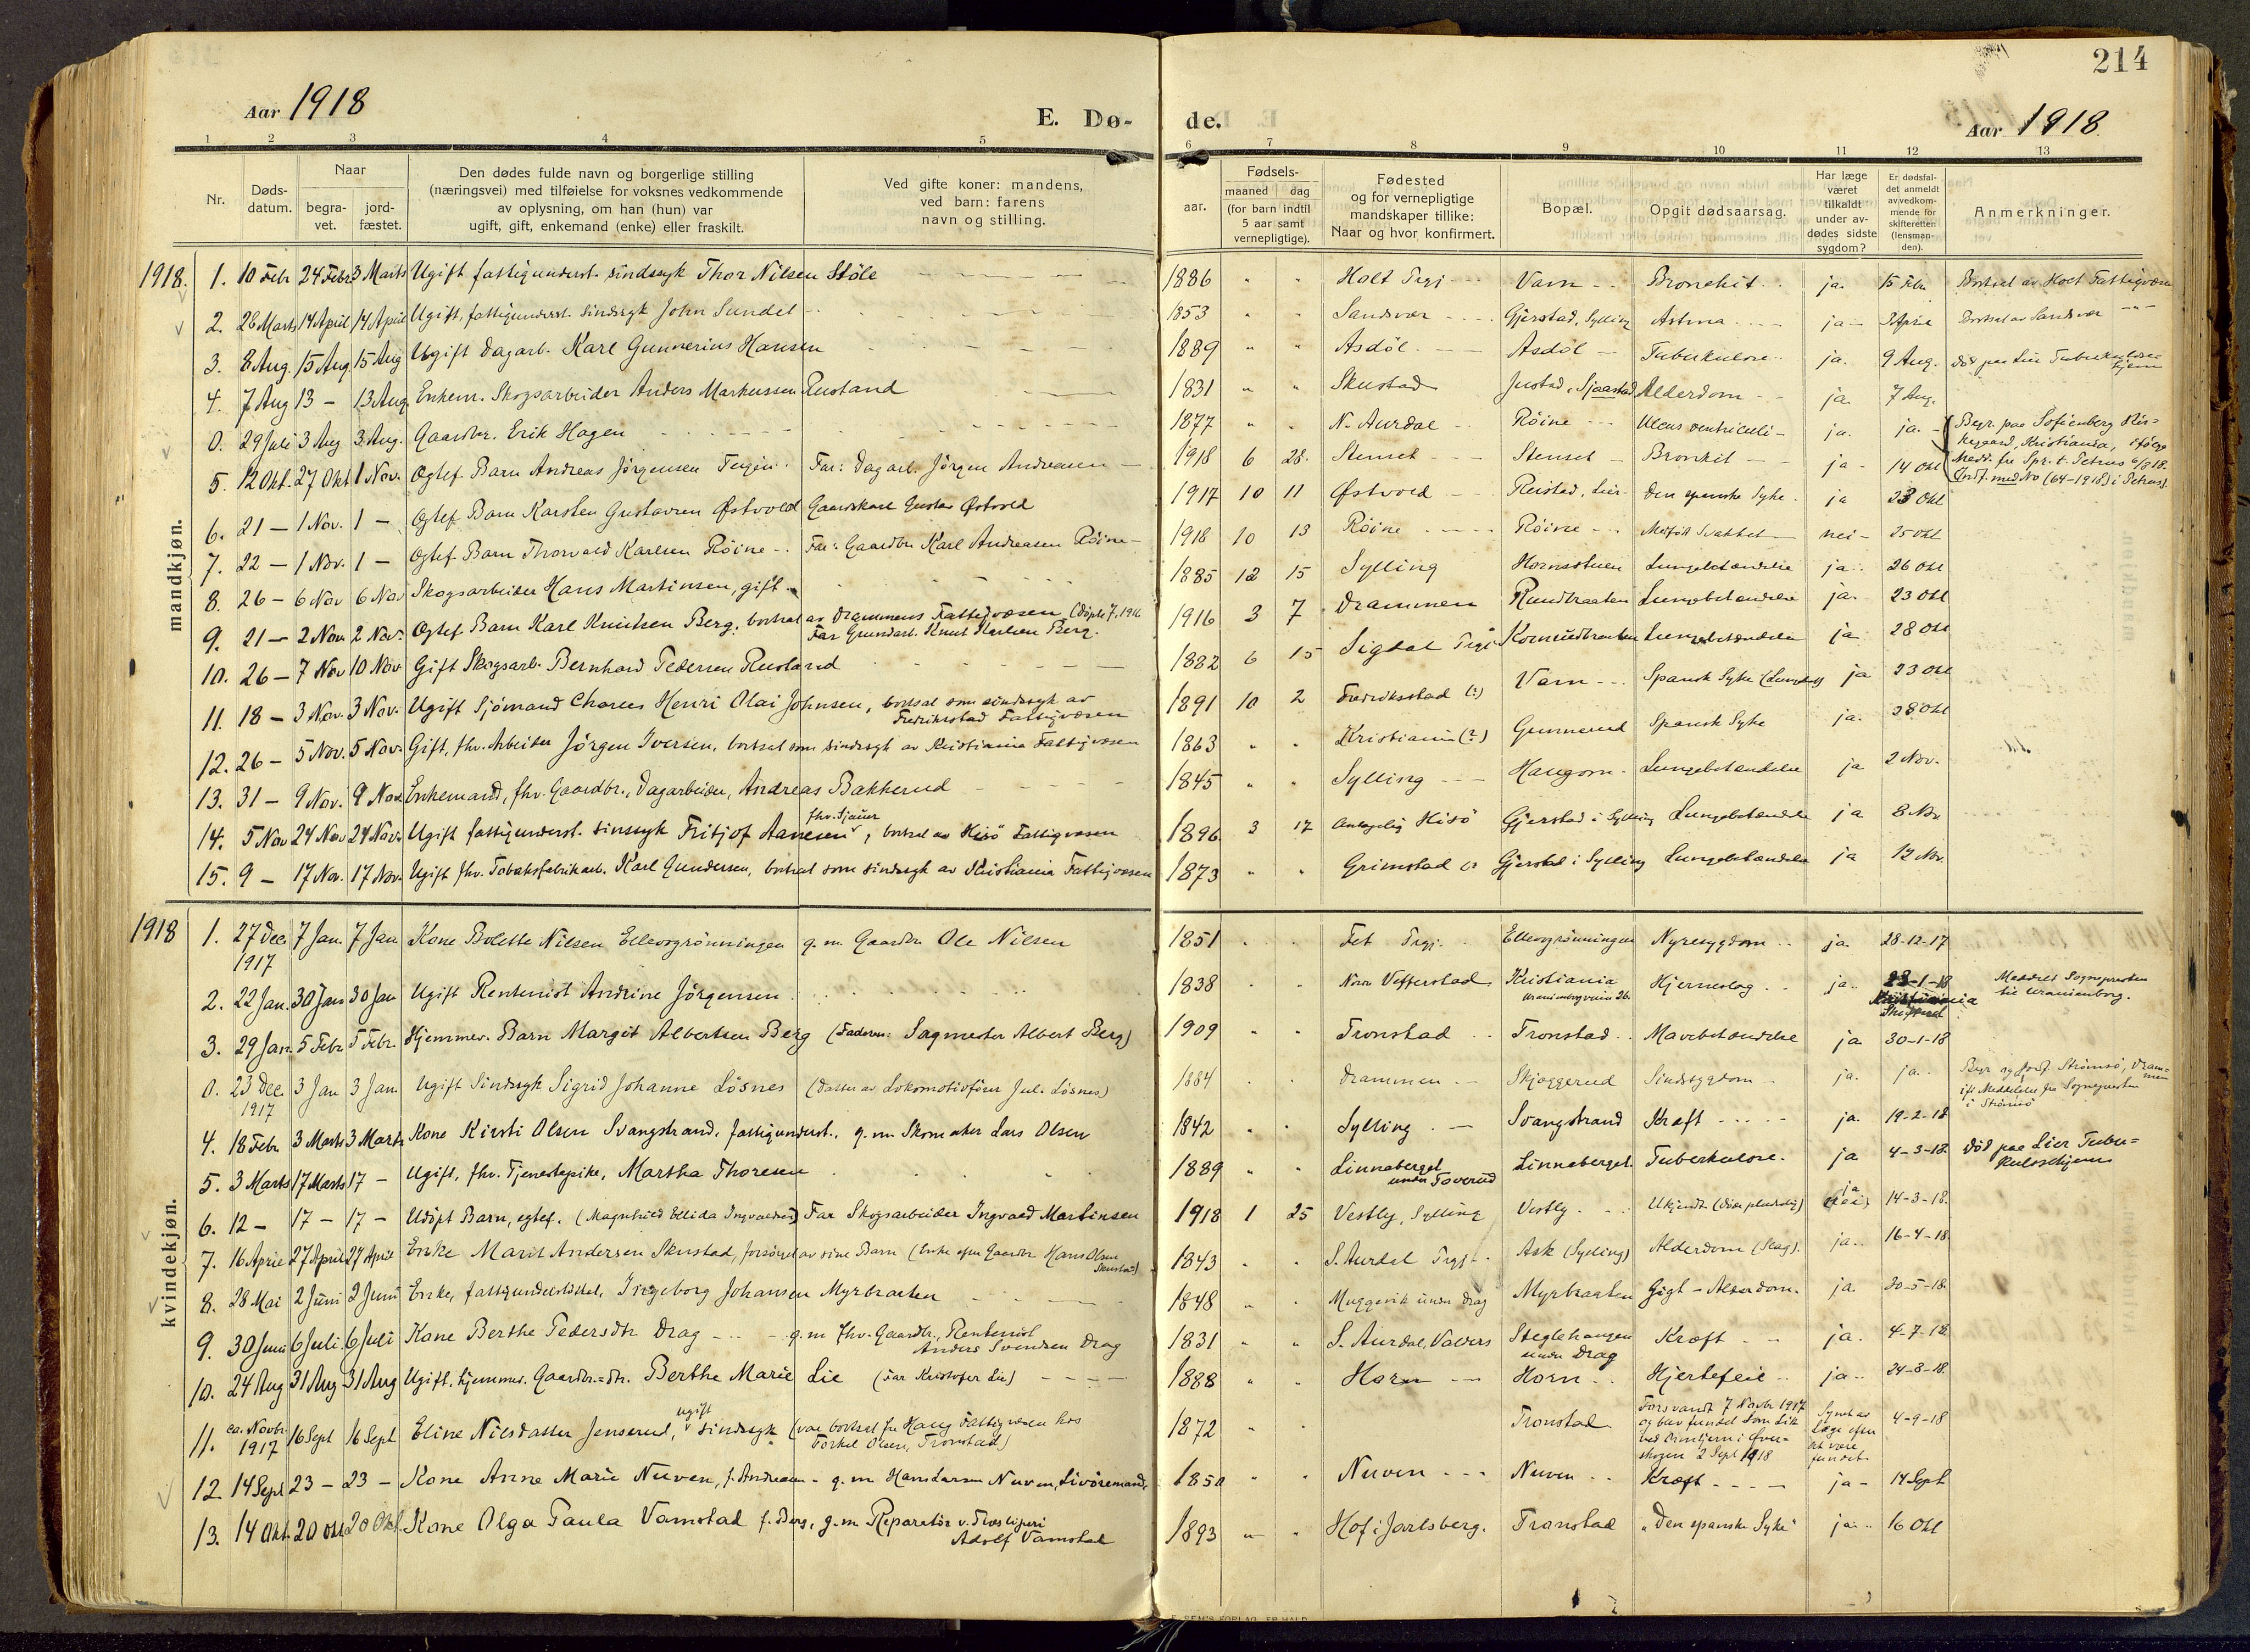 214
Aar 1918
E. Dø-
de.
Aar 1918.
1 2 3 4 5
6 7 8 9 10 11 12 13
Nr.
Døds-
datum.
Naar
begra-
vet.
jord-
fæstet.
Den dødes fulde navn og borgerlige stilling
(næringsvei) med tilføielse for voksnes vedkommende
av oplysning, om han (hun) var
ugift, gift, enkemand (enke) eller fraskilt.
Ved gifte koner: mandens,
ved barn: farens
navn og stilling.
aar.
Fødsels-
maaned dag
(for barn indtil
5 aar samt
vernepligtige).
Fødested
og for vernepligtige
mandskaper tillike:
Naar og hvor konfirmert.
Bopæl.
Opgit dødsaarsag.
Har læge
været
tilkaldt
under av-
dødes sidste
sygdom?
Er dødsfal-
det anmeldt
av vedkom-
mende for
skifteretten
(lensman-
den).
Anmerkninger.
mandkjøn.
1918. 1. 10 Febr 24 Febr 3 Marts Ugift fattigunderst. sindssyk Thor Nilsen Støle 1886 " " Holt Prgj. Varn Bronchit ja. 15 Febr. Bortsat av Holt Fattigvæsen
2. 28 Marts 14 April 14 April Ugift, fattigunderst. sindssyk John Sundet 1853 " " Sandsvær Gjerstad, Sylling Astma ja 3 April Bortsat av Sandsvær
3. 8 Aug. 15 Aug 15 Aug Ugift Dagarb. Karl Gunnerius Hansen 1889 " " Asdøl Asdøl Tuberkulose ja. 9 Aug. Død paa Lier Tuberkulose
hjem
4. 7 Aug 13 - 13 Aug. Enkem. Skogsarbeider Anders Markussen Rustand 1831 " " Skustad Justad, Sjaastad Alderdom ja 7 Aug.
0. 29 Juli 3 Aug 3 Aug. Gaardbr. Erik Hagen 1877 " " N. Aurdal Røine Ulcus ventriculi ja. ja. Begr. paa Sofienberg Kir-
kegaard, Kristiania, ifølge
Medd. fra Spr. t. Petrus 6/8 18.
Indf. med No (64-1918) i Petrus).
5. 12 Okt. 27 Okt 1 Nov. Ægtef. Barn Andreas Jørgensen Far: Dagarb. Jørgen Andreasen 1918 6 28. Stenset Stenset Bronkit ja 14 Okt
6. 21 - 1 Nov. 1 - Ægtef. Barn Karsten Gustavsen Østvold Gaardskarl Gustav Østvold 1917 10 11 Østvold Reistad, Lier Den spanske Syke ja 23 Okt
7. 22 - 1 Nov. 1 - Ægtef. Barn Thorvald Karlsen Røine Far: Gaardbr. Karl Andreasen Røine 1918 10 13 Røine Røine Medfødt Svakhet nei 25 Okt
8. 26 - 6 Nov 6 Nov Skogsarbeider Hans Martinsen, gift 1885 12 15 Sylling Hornsstuen Lungebetændelse ja 26 Okt
9. 21 - 2 Nov. 2 Nov. Ægtef Barn Karl Knutsen Berg, bortsat av Drammens Fattigvæsen
Far Grundarb. Knut Karlsen Berg. 1916 3 7 Drammen Rundbraaten Lungebetændelse ja. 23 Okt
10. 26 - 7 Nov 10 Nov Gift Skogsarb. Bernhard Pedersen Rustand 1882 6 15 Sigdal Prgj. Lungebetændelse ja 28 Okt
11. 18 - 3 Nov. 3 Nov. Ugift Sjømand Charles Henri Olai Johnsen, bortsat som sindssyk av
Fredriksstad Fattigvæsen 1891 10 2 Fredriksstad (?) Varn Spansk Syke ja 23 Okt
12. 26 - 5 Nov. 5 Nov. Gift, fhv. Arbeider Jørgen Iversen, bortsat som sindssyk av Kristiania Fattigvæsen 1863 " " Kristiania (?) Gunnerud Spansk Syke ja. 28 Okt
13. 31 - 9 Nov. 9 Nov. Enkemand, fhv. Gaardbr., Dagarbeider, Andreas Bakkerud 1845 " " Sylling Haugom Lungebetændelse ja 2 Nov.
14. 5 Nov 24 Nov 24 Nov. Ugift fattigunderst. sinssyk Fritjof Aanesen fhv. Sjauer, bortsat av Hisö Fattigvæsen 1896 3 17 Antagelig Hisö Gjerstad i Sylling Lungebetændelse ja 8 Nov.
15. 9 - 17 Nov. 17 Nov. Ugift fhv. Tobaksfabrikarb. Karl Gundersen, bortsat som sindssyk av Kristiania Fattigvæsen 1873 " " Grimstad (? Gjerstad i Sylling Lungebetændelse ja 12 Nov.
kvindekjøn.
1918 1. 27 Dec. 1917 7 Jan 7 Jan Kone Bolette Nilsen Ellevogrønningen g. m. Gaardbr. Ole Nilsen 1851 Fet Prgj. Ellevogrønningen Nyresygdom ja 28-12-17
2. 22 Jan. 30 Jan 30 Jan Ugift Rentenist Andrine Jørgensen 1838 Nordre Vefferstad Kristiania
Uranienborgveien 26. Hjerneslag ja. 23-1-18 Meddelt Sognepresten
til Uranienborg.
3. 29 Jan. 5 Febr 5 Febr. Hjemmev. Barn Margit Albertsen Berg (Faderen: Sagmester Albert Berg) 1909 Tronstad Tronstad Mavebetændelse ja 30-1-18
0. 23 Dec. 1917 3 Jan 3 Jan Ugift Sindssyk Sigrid Johanne Løsnes (Datter av Lokomotivfører Jul. Løsnes) 1884 Drammen Skjæggerud Sindssygdom ja. ja. Begr og Jordf. Strømsø, Dram-
men
ifl Meddelelse fra Sognepresten
i Strømsø
4. 18 Febr 3 Marts 3 Marts Kone Kirsti Olsen Svangstrand, fattigunderst., g. m. Skomaker Lars Olsen 1842 Sylling Svangstrand Kræft ja. 19-2-18
5. 3 Marts 17 Marts 17 - Ugift, fhv. Tjenestepike, Martha Thoresen 1889 Linnaberget
under Toverud Linnaberget Tuberkulose. ja 4-3-18. Død paa Lier Tuber=
kulosehjem
6. 12 - 17 - 17 - Udøpt Barn, egtef. (Magnhild Ellida Ingvaldsen) Far Skogsarbeider Ingvald Martinsen 1918 1 25 Vestby, Sylling Vestby Ukjendt (døde pludselig) ja (nei) 14-3-18.
7. 16 April 27 April 27 April Enke Marit Andersen Skustad, forsørget av sine Barn (Enke efter Gaardbr Hans Olsen
Skustad) 1843 S. Aurdal Prgj. Ask (Sylling) Alderdom (Slag). ja. 16-4-18.
8. 28 Mai 2 Juni 2 Juni Enke, fattigunderstøttet, Ingeborg Johansen Myrbraaten 1848 Muggevik under Drag Myrbraaten Gigt - Alderdom. ja. 30-5-18.
9. 30 Juni 6 Juli 6 Juli Kone Berthe Pedersdtr Drag g. m fhv. Gaardbr., Rentenist
Anders Svendsen Drag 1831 S. Aurdal, Valders Steglehaugen
under Drag Kræft ja. 4-7-18
10. 24 Aug 31 Aug 31 Aug Ugift, hjemmev. Gaardbr.=dtr. Berthe Marie Lie (Far Kristofer Lie) 1888 Horn Horn Hjertefeil ja 24-8-18.
11. ca. Novbr. 1917 16 Sept 16 Sept. Eline Nilsdatter Jenserud, ugift sindssyk (var bortsat fra Haug Fattigvæsen hos
Torkel Olsen, Tronstad) 1872 Tronstad Forsvandt 7 Novbr 1917
og blev fundet som Lik
ved i Øver-
skogen 2 Sept 1918 Synet av
Læge efter
at være
fundet. 4-9-18
12. 14 Sept 23 - 23 - Kone Anne Marie Nuven, f. Andreasen - g. m Hans Larsen Nuven, Livøremand. 1850 Nuven Nuven Kræft ja 14 Sept
13. 14 Okt. 20 Okt 20 Okt. Kone Olga Paula Vamstad f. Berg, g. m Reparatør v. Træsliperi
Adolf Vamstad 1893 Hof i Jarlsberg. Tronstad "Den spanske Syke" ja 16 Okt